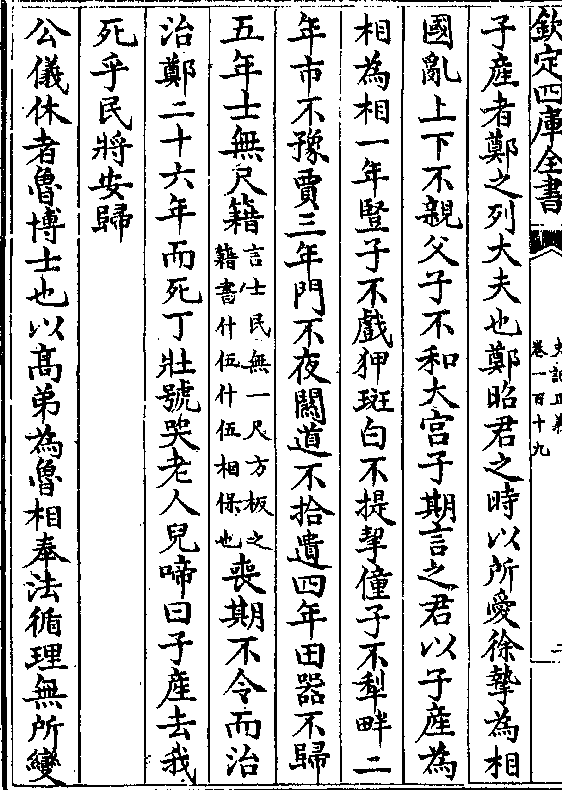 欽定四庫全書
史記正義
卷一百十九
子產者鄭之列大夫也鄭昭君之時以所愛徐摯為相
國亂上下不親父子不和大宫子期言之君以子產為
相為相一年豎子不戲狎斑白不提挈僮子不犁畔二
年市不豫賈三年門不夜關道不拾遺四年田器不歸
五年士無尺籍言士民無一尺方板之籍書什伍什伍相保也喪期不令而治
治鄭二十六年而死丁壯號哭老人兒啼曰子產去我
死乎民將安歸
公儀休者魯博士也以高弟為魯相奉法循理無所變